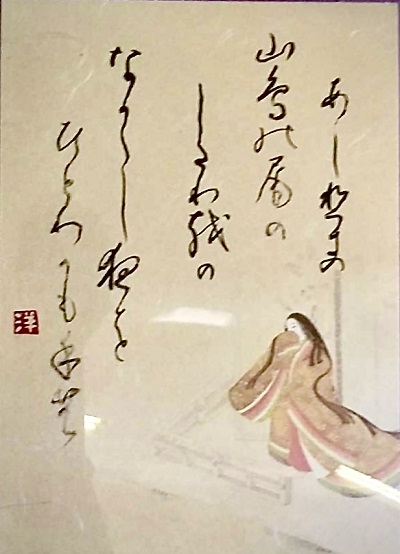 あしびきの
山鳥の尾の
しだり越の
なか〲し夜を
ひとりかもねむ
洋